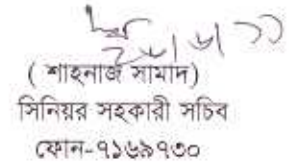 (শাহনাজ সামাদ)
সিনিয়র সহকারী সচিব
ফোন-৭১৬৯৭৩০